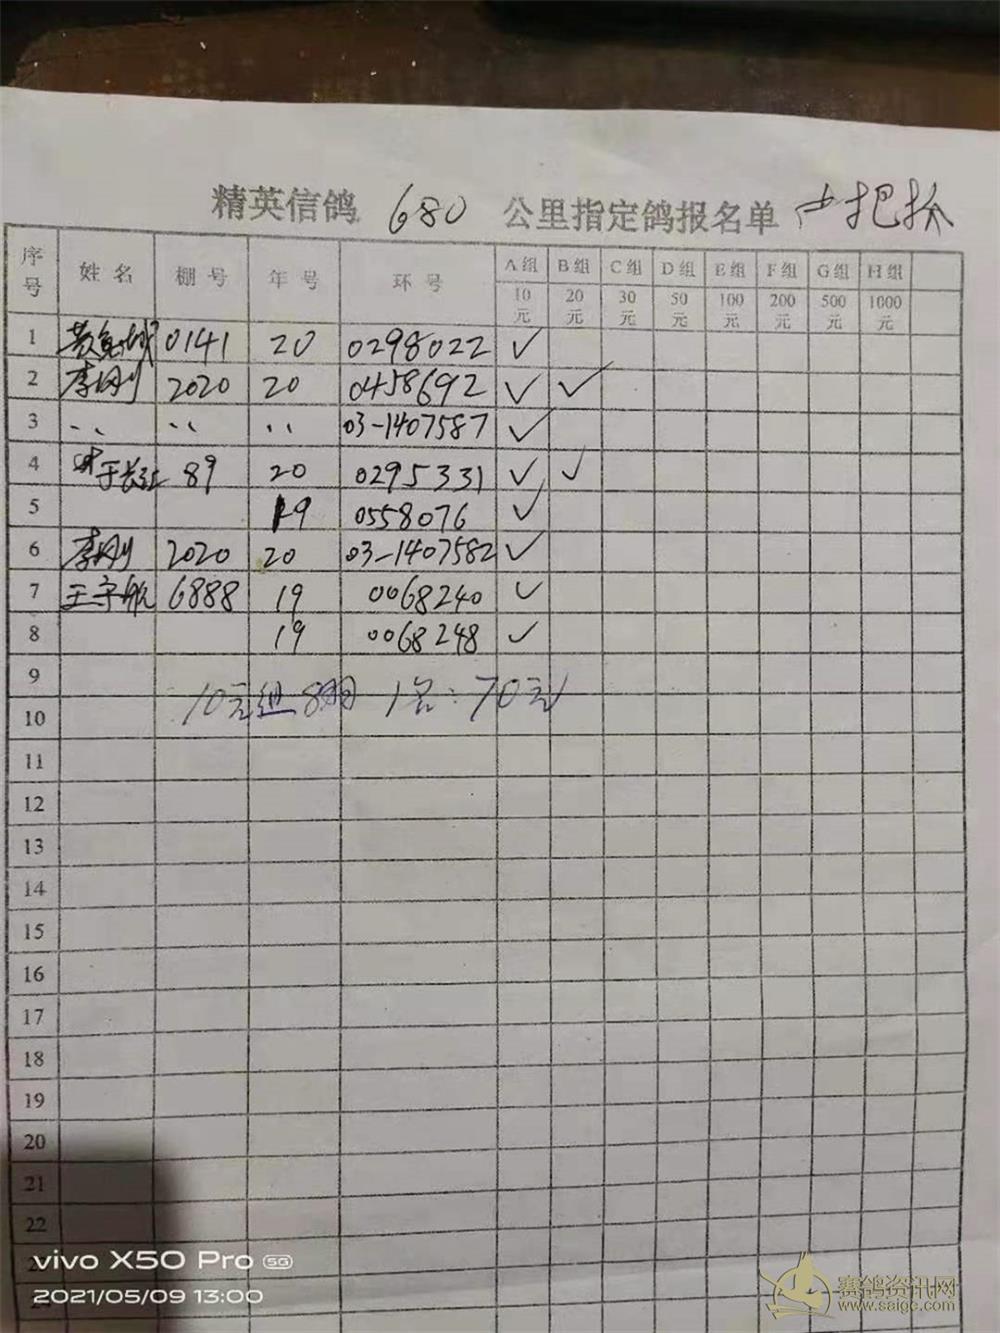 精英信鸽 680 公里指定鸽报名单 把抓
序号 姓名 棚号 年号 环号 A组 B组 C组 D组 E组 F组 G组 H组
10元 20元 30元 50元 100元 200元 500元 1000元
1 0141 20 0298022 ✓
2 李刚 2020 20 0458692 ✓ ✓
3 、、 、、 、、 03-1407587 ✓
4 于长江 89 20 0295331 ✓ ✓
5 19 0558076 ✓
6 李刚 2020 20 03-1407582 ✓
7 王宇航 6888 19 0068240 ✓
8 19 0068248 ✓
9
10元组 8羽 1名:70元
10
11
12
13
14
15
16
17
18
19
20
21
22
vivo X50 Pro 5G
2021/05/09 13:00
赛鸽资讯网
www.saige.com